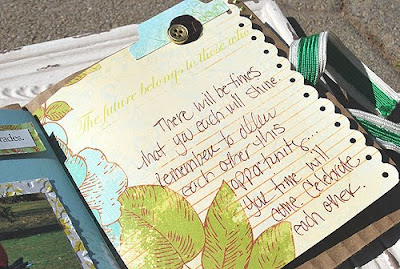 The future belongs to those who
There will be times
that you each will shine.
remember to allow
each other this
opportunity....
your time will
come. Celebrate
each other.
rades.